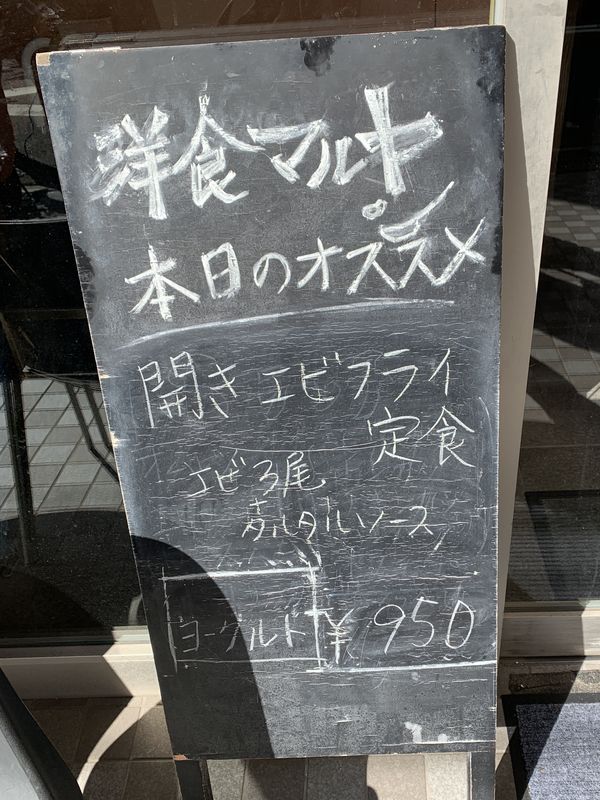 洋食マルヤ
本日のオススメ
開きエビフライ
定食
エビ3尾
タルタルソース
ヨーグルト ¥950